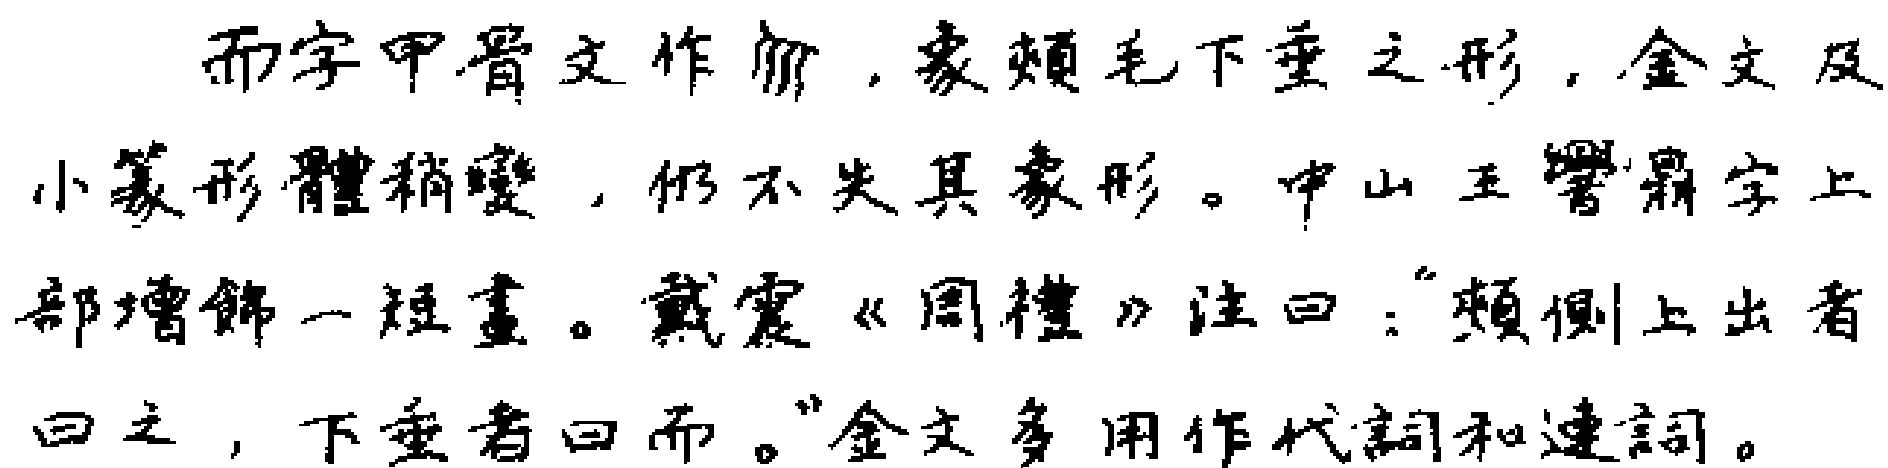 而字甲骨文作，象頰毛下垂之形，金文及
小篆形體稍變，仍不失其象形。中山王譽鼎字上
部增飾一短畫。戴震《周禮》注曰：“頰側上出者
曰之，下垂者曰而。”金文多用作代詞和連詞。